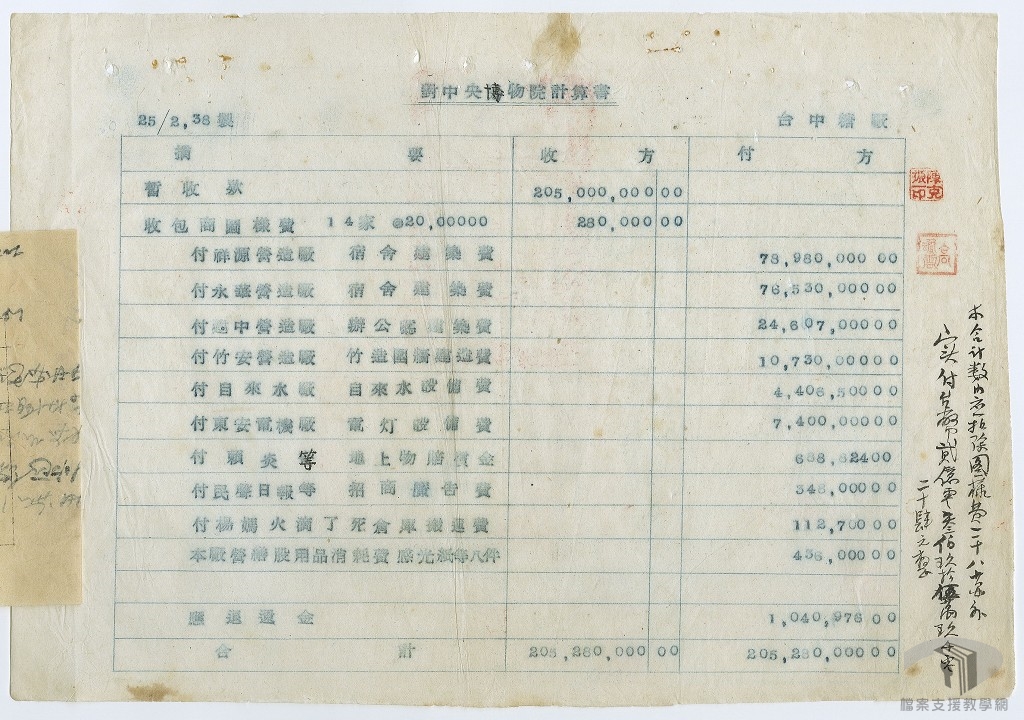 對中央博物院計算書
25/2,38製 台中糖廠
摘要 收方 付方
暫收款 205,000,000 00
收包商圖樣費 14家 @20,00000 280,000 00
付祥源營造廠 宿舍建築費 78,980,000 00
付永華營造廠 宿舍建築費 76,530,000 00
付中營造廠 辦公廳建築費 24,607,000 00
付竹安營造廠 竹造圍牆建造費 10,730,000 00
付自來水廠 自來水設備費 4,406,500 00
付東安電機廠 電灯設備費 7,400,000 00
付賴炎等 地上物賠償金 688,824 00
付民聲日報等 招商廣告費 348,000 00
付楊媽火滿丁死倉庫搬運費 112,700 00
本廠營繕股用品消耗費感光紙等八件 436,000 00
應退還金 1,040,976 00
合計 205,280,000 00 205,280,000 00
本合計數內應扣除圖樣費二十八萬外
實付台幣貳億零叁佰玖拾伍萬玖仟零
二十肆元整
檔案支援教學網